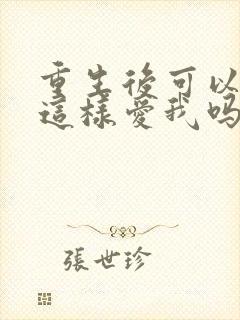 重生後可以
這樣愛我嗎
張世珍